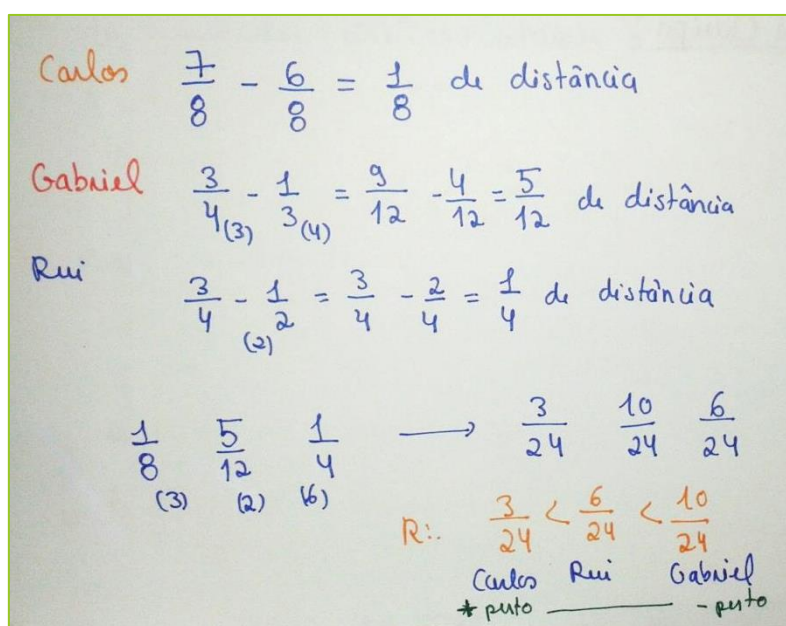 Carlos 7/8 - 6/8 = 1/8 de distância
Gabriel 3/4(3) - 1/3(4) = 9/12 - 4/12 = 5/12 de distância
Rui 3/4 - 1/2(2) = 3/4 - 2/4 = 1/4 de distância
1/8(3) 5/12(2) 1/4(6) → 3/24 10/24 6/24
R:. 3/24 < 6/24 < 10/24
Carlos Rui Gabriel
* perto - perto